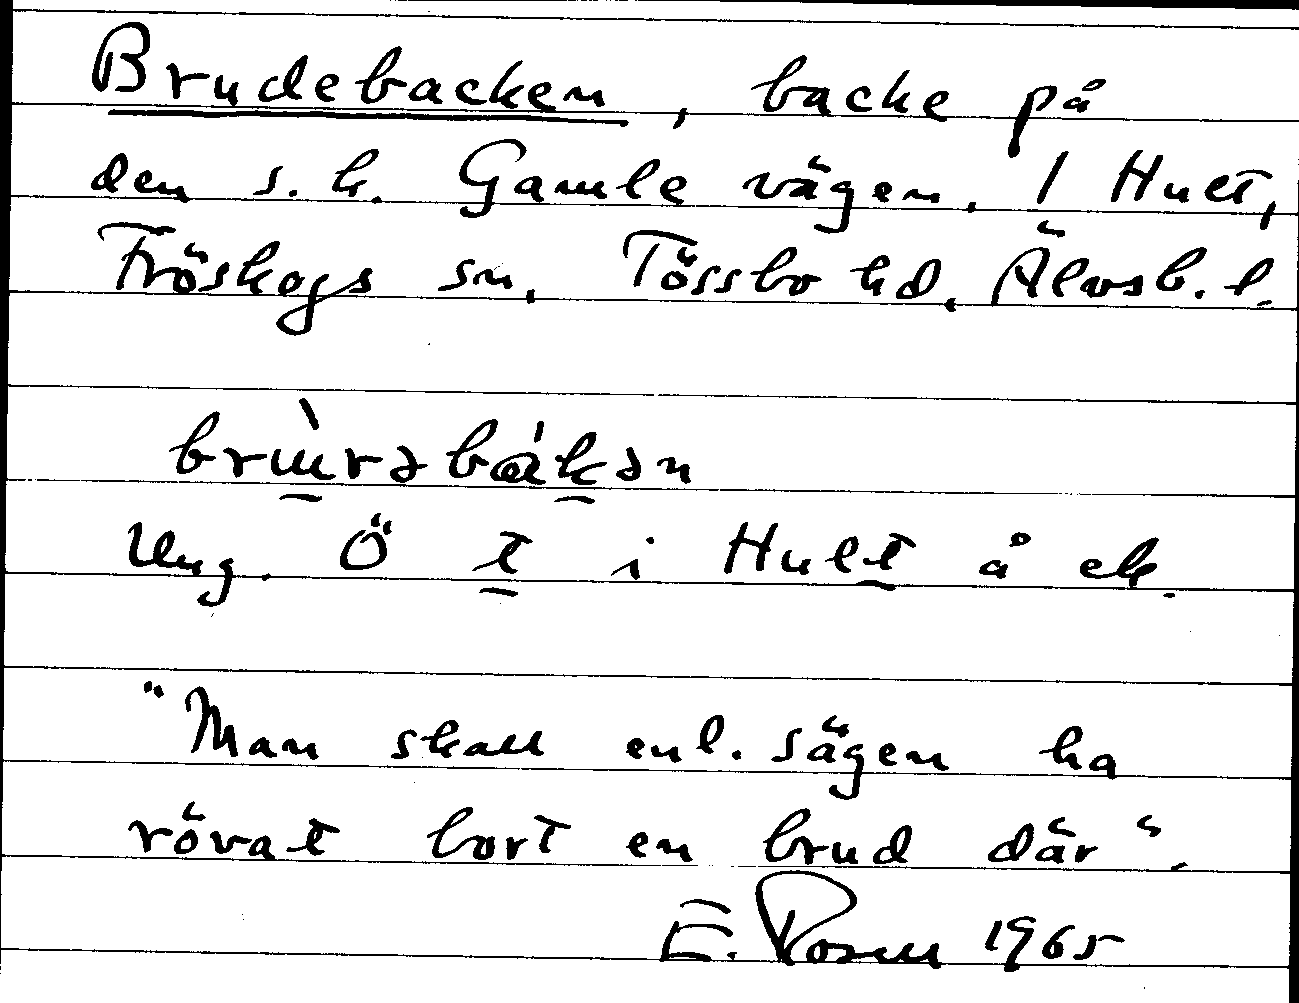 Brudebacken, backe på
den s.k. Gamle vägen. I Hult,
Fröskogs sn. Tössbo hd. Älvsb. l.
Ung. Ö t i Hult å ek.
"Man skall enl. sägen ha
rövat bort en brud där".
E. Rosen 1965